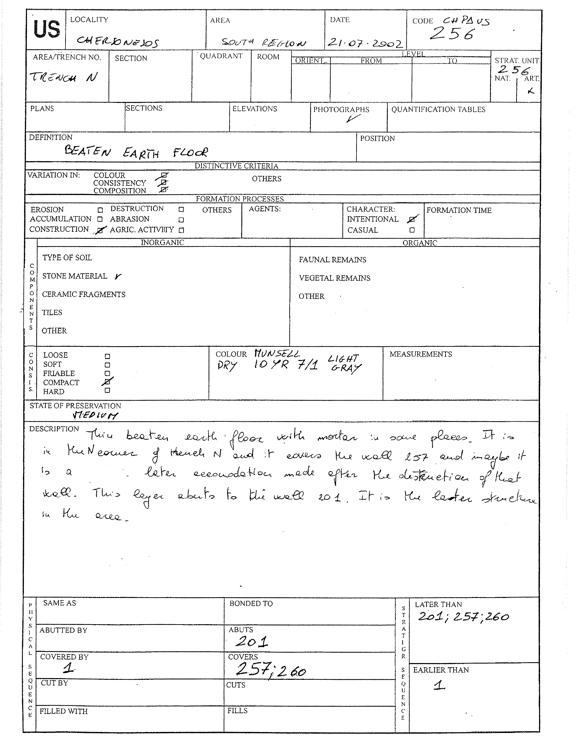 US
LOCALITY
CHERSONESOS
AREA
SOUTH REGION
DATE
21-07-2002
CODE CHPAUS
256
AREA/TRENCH NO.
TRENCH N
SECTION
QUADRANT
ROOM
LEVEL
ORIENT. FROM TO
STRAT. UNIT
256
NAT. ART.
PLANS
SECTIONS
ELEVATIONS
PHOTOGRAPHS
✓
QUANTIFICATION TABLES
DEFINITION
BEATEN EARTH FLOOR
POSITION
DISTINCTIVE CRITERIA
VARIATION IN: COLOUR
CONSISTENCY
COMPOSITION
OTHERS
FORMATION PROCESSES
EROSION DESTRUCTION
ACCUMULATION ABRASION
CONSTRUCTION AGRIC. ACTIVIIY
OTHERS
AGENTS:
CHARACTER:
INTENTIONAL
CASUAL
FORMATION TIME
COMPONENTS
INORGANIC
TYPE OF SOIL
STONE MATERIAL ✓
CERAMIC FRAGMENTS
TILES
OTHER
ORGANIC
FAUNAL REMAINS
VEGETAL REMAINS
OTHER
CONSIS.
LOOSE
SOFT
FRIABLE
COMPACT
HARD
COLOUR MUNSELL
DRY 10 YR 7/1 LIGHT GRAY
MEASUREMENTS
STATE OF PRESERVATION
MEDIUM
DESCRIPTION Thin beaten earth floor with mortar in some places. It is
in the N corner of trench N and it covers the wall 257 and maybe it
is a later accomodation made after the distruction of that
wall. This layer abuts to the wall 201. It is the later structure
in the area.
PHYSICAL SEQUENCE
SAME AS
BONDED TO
ABUTTED BY
ABUTS
201
COVERED BY
1
COVERS
257; 260
CUT BY
CUTS
FILLED WITH
FILLS
STRATIGR SEQUENCE
LATER THAN
201; 257; 260
EARLIER THAN
1